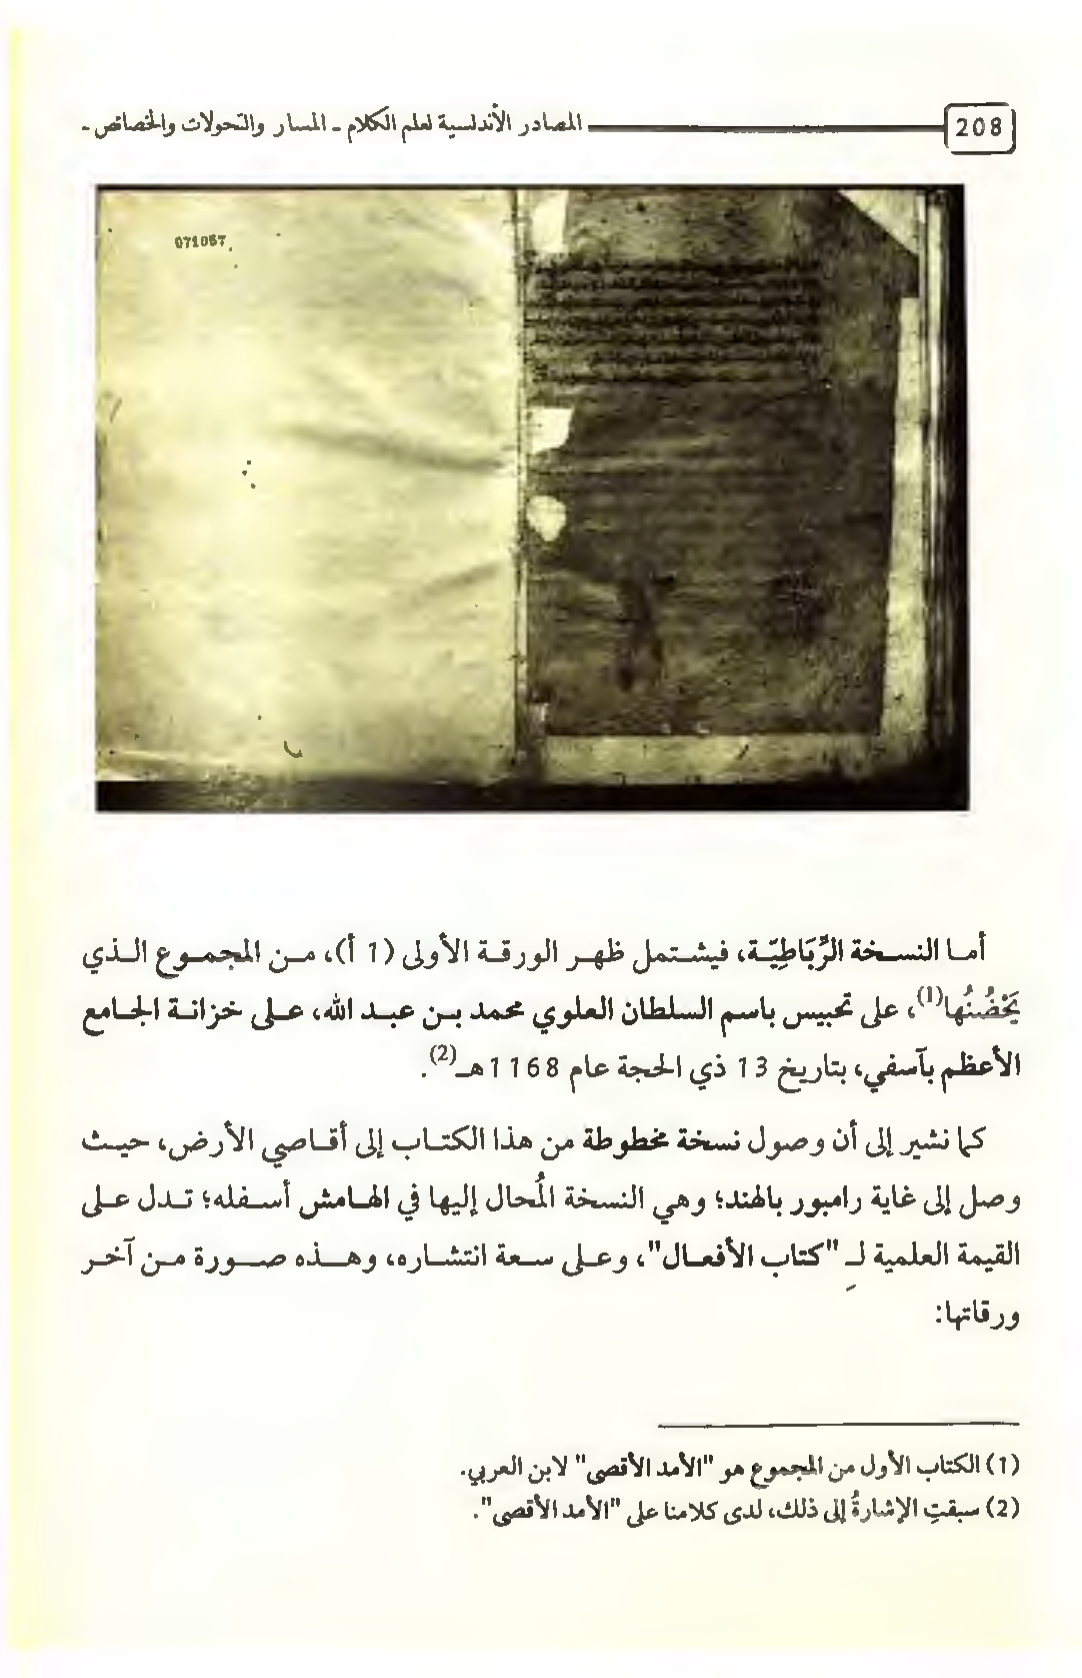 208 المصادر الأندلسية لعلم الكلام - المسار والتحولات والخصائص -
071057
أما النسخة الرِّبَاطِيّة، فيشتمل ظهر الورقة الأولى (1 أ)، من المجموع الذي
يَحْضُنُها(1)، على تحبيس باسم السلطان العلوي محمد بن عبد الله، على خزانة الجامع
الأعظم بآسفي، بتاريخ 13 ذي الحجة عام 1168هـ(2).
كما نشير إلى أن وصول نسخة مخطوطة من هذا الكتاب إلى أقاصي الأرض، حيث
وصل إلى غاية رامبور بالهند؛ وهي النسخة المُحال إليها في الهامش أسفله؛ تدل على
القيمة العلمية لـِ "كتاب الأفعال"، وعلى سعة انتشاره، وهذه صورة من آخر
ورقاتها:
(1) الكتاب الأول من المجموع هو "الأمد الأقصى" لابن العربي.
(2) سبقتِ الإشارةُ إلى ذلك، لدى كلامنا على "الأمد الأقصى".